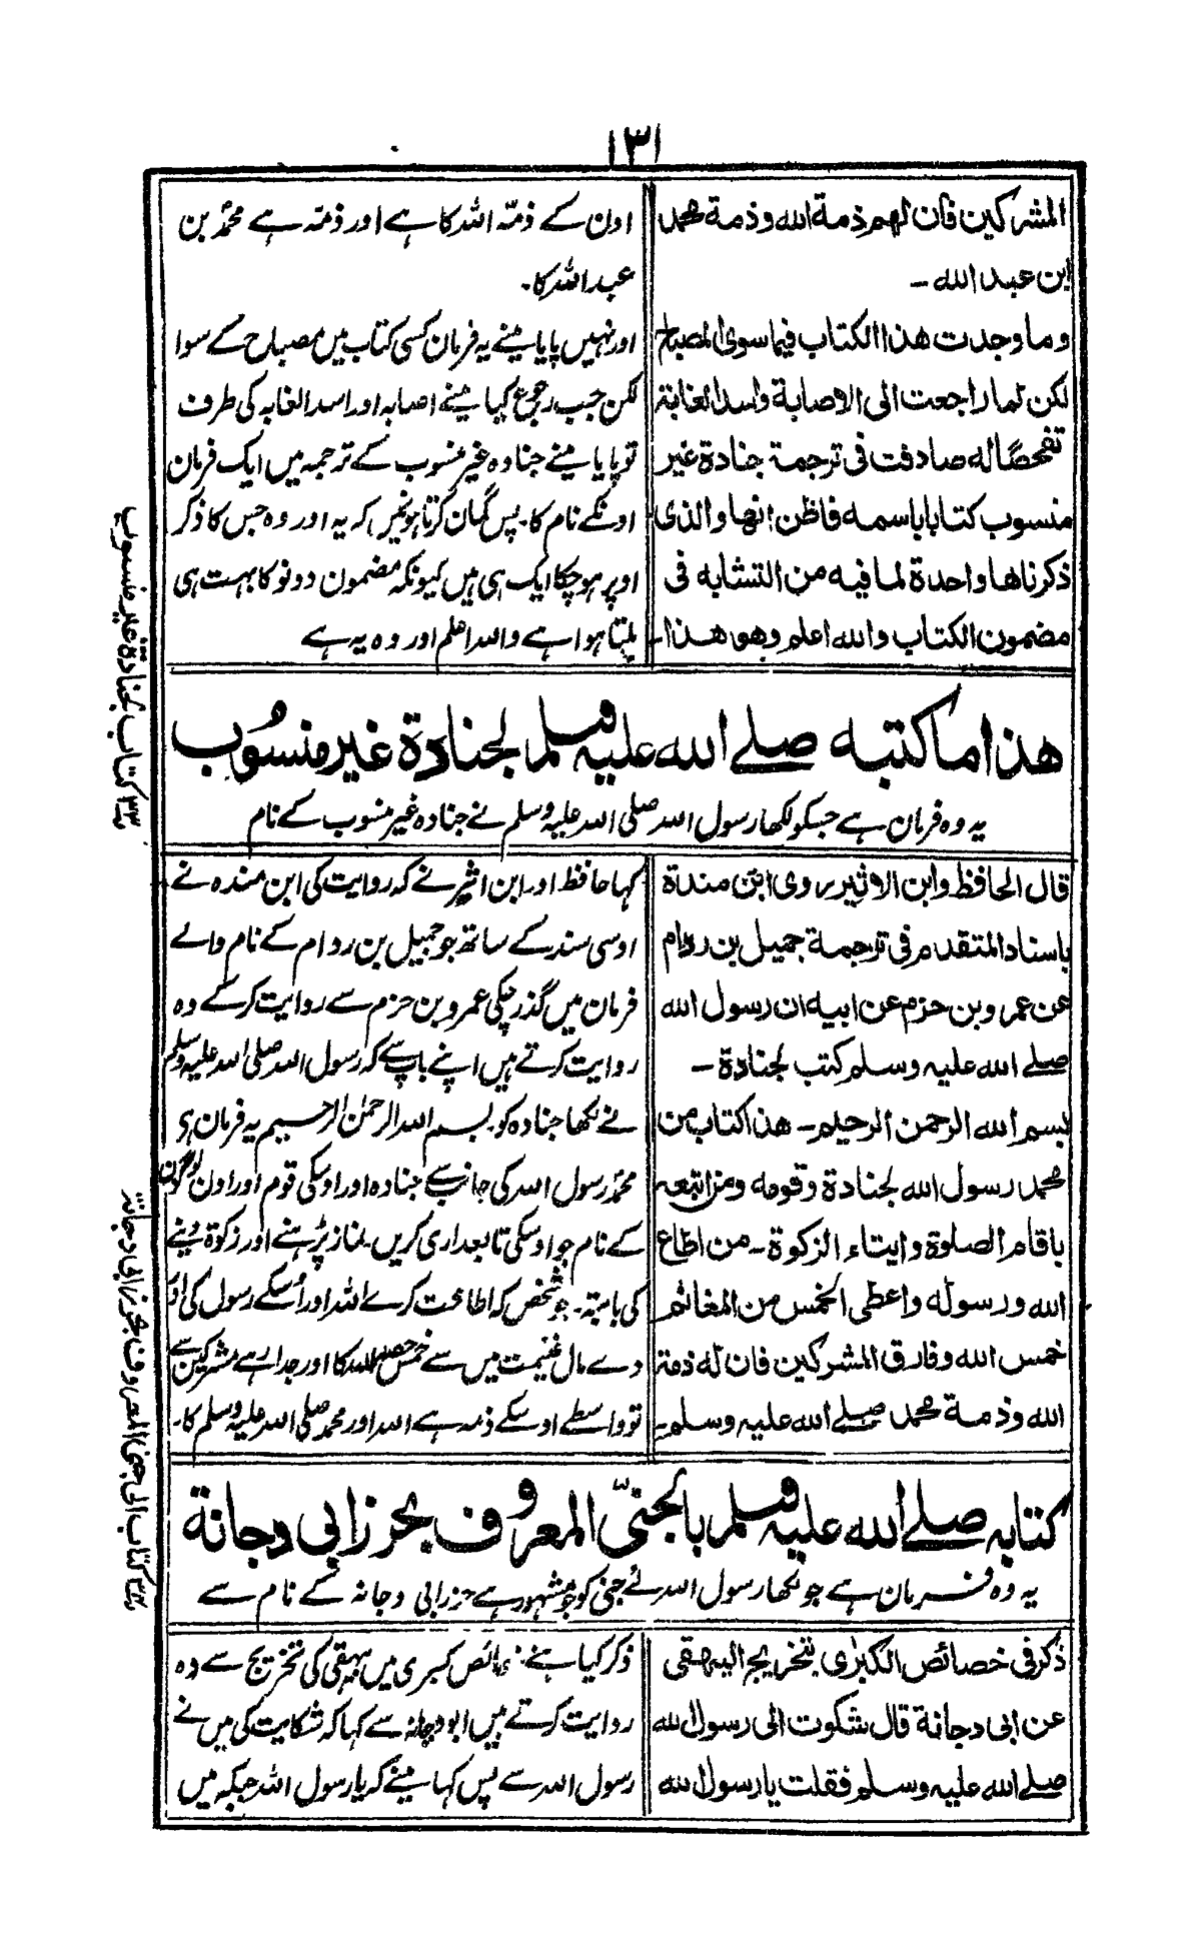 ۱۳۱
المشركين فان لهم ذمة الله وذمة محمد
ابن عبد الله ـ
وما وجدت هذا الكتاب فيما سوى المصباح
لكن لما راجعت الى الاصابة واسد الغابة
تفحصًا له صادفت فى ترجمة جنادة غير
منسوب كتابا باسمه فاظن انها والذى
ذكرناها واحدة لما فيه من التشابه فى
مضمون الكتاب والله اعلم وهو هذا ـ
اون کے ذمّہ اللہ کا ہے اور ذمّہ ہے محمدؐ بن
عبد اللہ کا۔
اور نہیں پایا مینے یہ فرمان کسی کتاب میں مصباح کے سوا
لکن جب رجوع کیا مینے اصابہ اور اسد الغابہ کی طرف
تو پایا مینے جنادہ غیر منسوب کے ترجمہ میں ایک فرمان
اونکے نام کا۔ پس گمان کرتا ہونمیں کہ یہ اور وہ جس کا ذکر
اوپر ہوچکا ایک ہی ہیں کیونکہ مضمون دونو کا بہت ہی
ملتا ہوا ہے واللہ اعلم اور وہ یہ ہے
هذا ما كتبه صلے الله عليه وسلم لجنادة غير منسُوب
یہ وہ فرمان ہے جسکو لکھا رسول اللہ صلی اللہ علیہ وسلم نے جنادہ غیر منسوب کے نام
قال الحافظ وابن الاثير روى ابن مندة
باسناد المتقدم فى ترجمة جميل بن ردام
عن عمرو بن حزم عن ابيه ان رسول الله
صلے الله عليه وسلم كتب لجنادة ـ
بسم الله الرحمن الرحيم ـ هذا كتاب من
محمد رسول الله لجنادة وقومه ومن اتبعه
باقام الصلوة وايتاء الزكوة ـ من اطاع
الله ورسوله واعطى الخمس من المغانم
خمس الله وفارق المشركين فان له ذمة
الله وذمة محمد صلے الله عليه وسلم ـ
کہا حافظ اور ابن اثیر نے کہ روایت کی ابن مندہ نے
اوسی سند کے ساتھ جو جمیل بن ردام کے نام والے
فرمان میں گذر چکی عمرو بن حزم سے روایت کرکے وہ
روایت کرتے ہیں اپنے باپ سے کہ رسول اللہ صلی اللہ علیہ وسلم
نے لکھا جنادہ کو۔ بسم اللہ الرحمٰن الرحیم یہ فرمان ہی
محمدؐ رسول اللہ کی جانب سے جنادہ اور اوسکی قوم اور اون لوگون
کے نام جو اوسکی تابعداری کریں۔ نماز پڑہنے اور زکوٰۃ دینے
کی بابتہ۔ جو شخص کہ اطاعت کرے اللہ اور اُسکے رسول کی اور
دے مال غنیمت میں سے خمس حصہ اللہ کا اور جدا رہے مشرکین سے
تو واسطے اوسکے ذمہ ہے اللہ اور محمد صلی اللہ علیہ وسلم کا۔
كتابه صلے الله عليه وسلم بالجنىّ المعروف بحرز ابى دجانة
یہ وہ فرمان ہے جو لکھا رسول اللہ نے جنی کو جو مشہور ہے حرز ابی دجانہ کے نام سے
ذكر فى خصائص الكبرٰى بتخريج البيهقى
عن ابى دجانة قال شكوت الى رسول الله
صلے الله عليه وسلم فقلت يا رسول الله
ذکر کیا ہے خصائص کبری میں بیہقی کی تخریج سے وہ
روایت کرتے ہیں ابو دجانہ سے کہا کہ شکایت کی میں نے
رسول اللہ سے پس کہا مینے کہ یا رسول اللہ جبکہ میں
۳۳ کتاب لجنادة غير منسوب
۳۴ کتاب الى جنى المعروف بحرز ابى دجانة